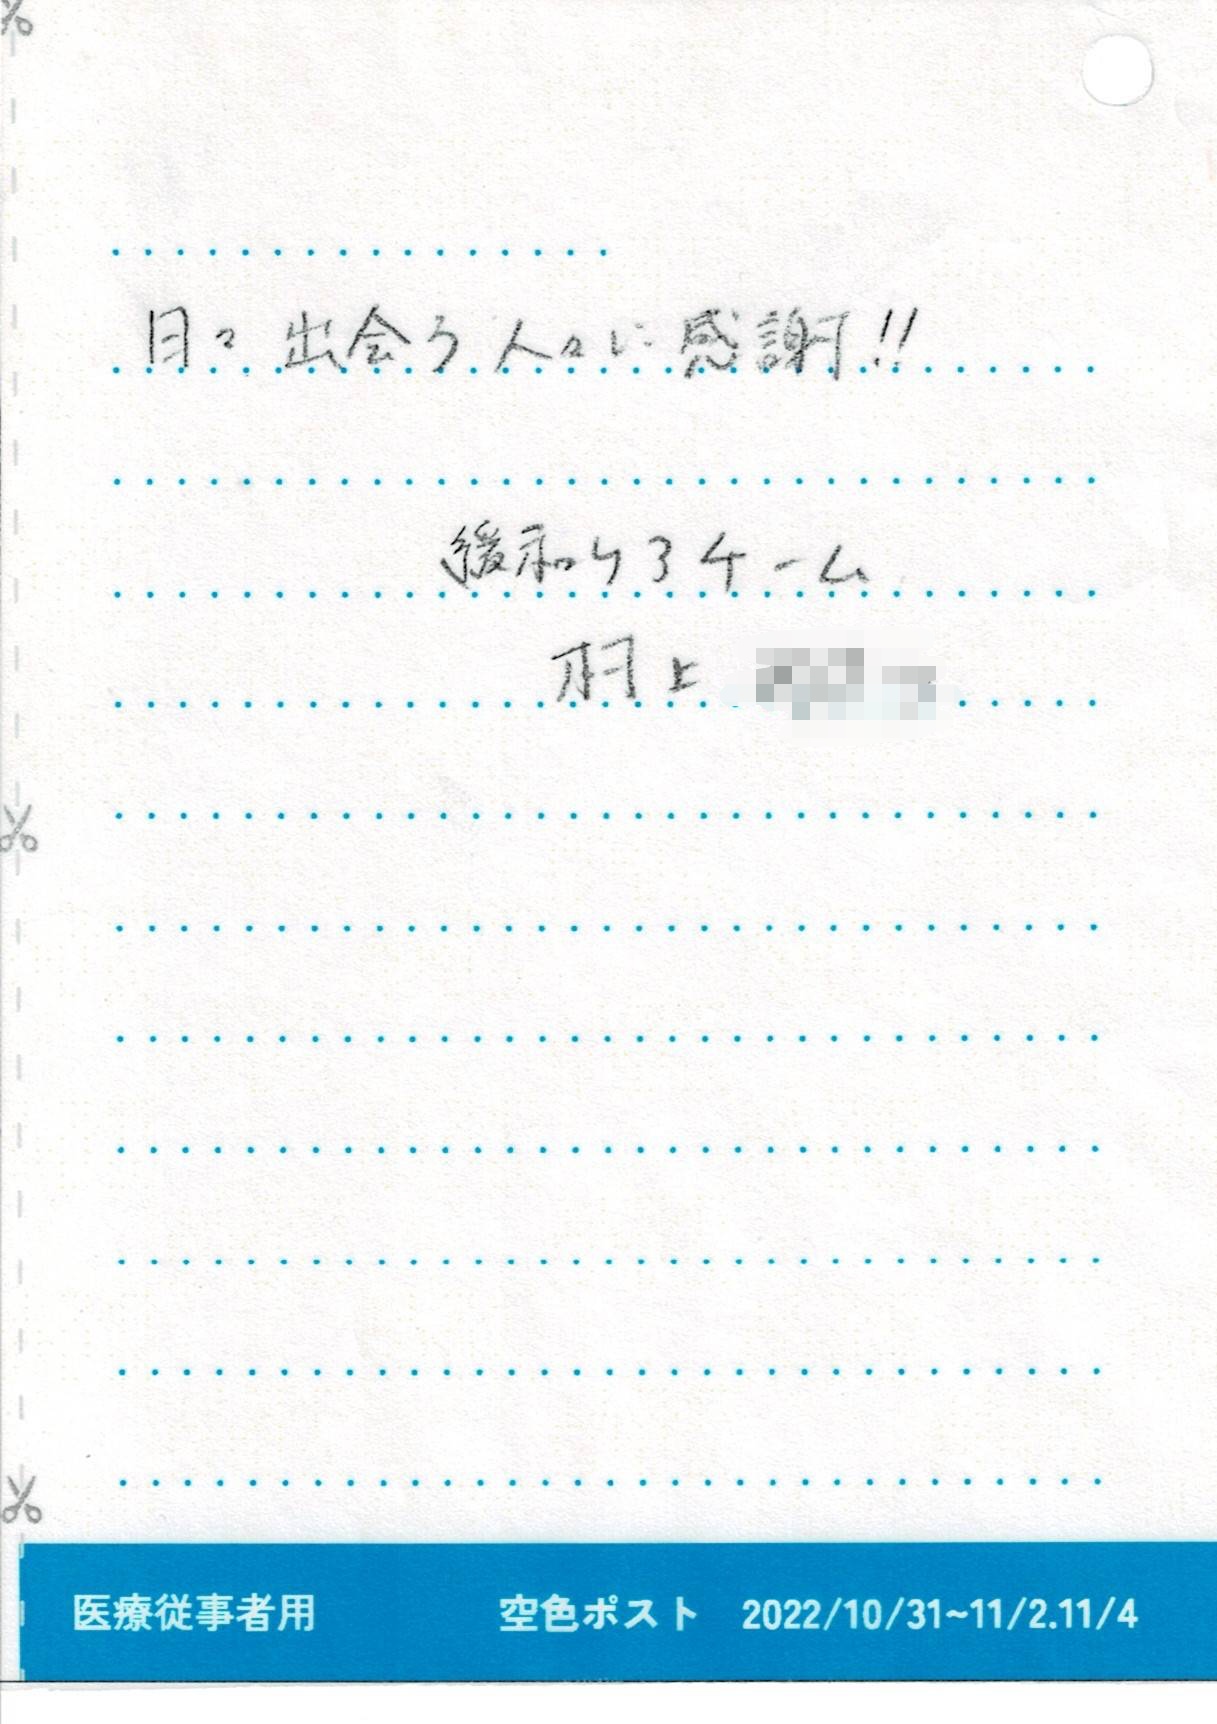 日々出会う人々に感謝!!
緩和ケアチーム
村上
医療従事者用 空色ポスト 2022/10/31~11/2.11/4